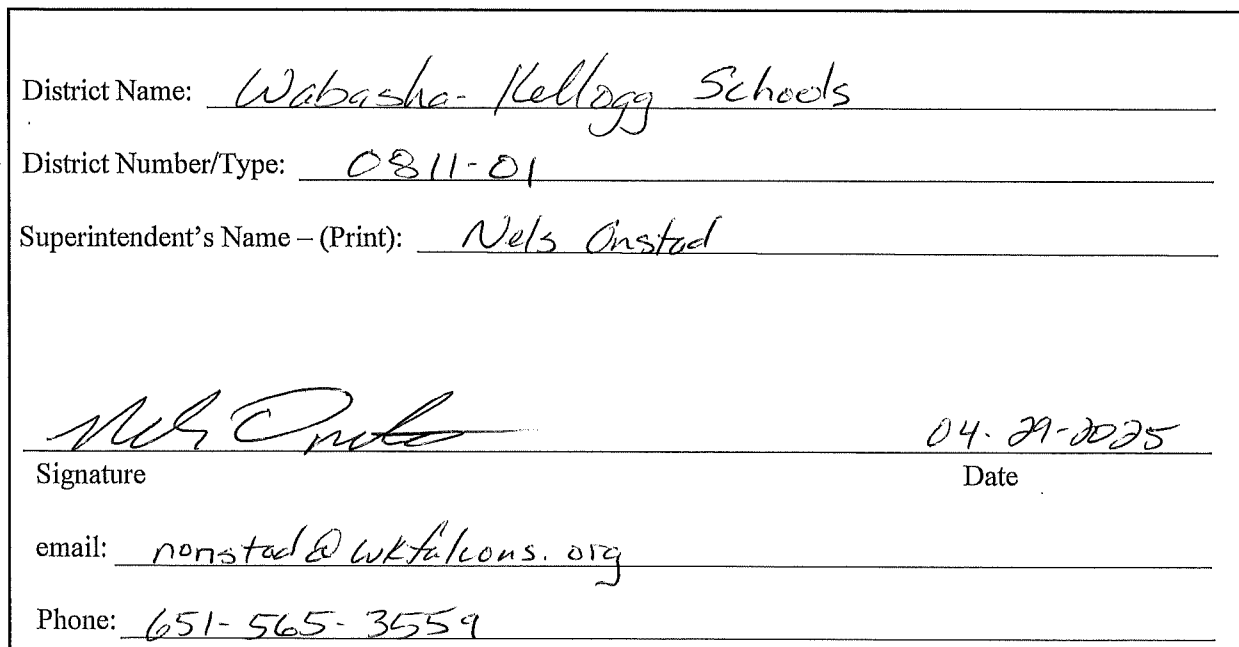 District Name: Wabasha-Kellogg Schools
District Number/Type: 0811-01
Superintendent's Name – (Print): Nels Onstad
Nels Onstad 04-29-2025
Signature Date
email: nonstad@wkfalcons.org
Phone: 651-565-3559